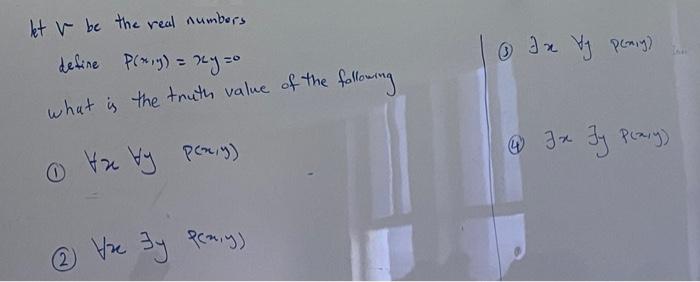 let r be the real numbers
define P(x,y) = xy=0
what is the truth value of the following
① ∀x ∀y P(x,y)
② ∀x ∃y P(x,y)
③ ∃x ∀y P(x,y)
④ ∃x ∃y P(x,y)